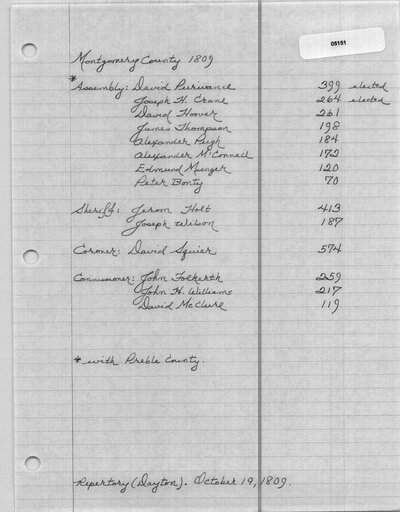 05151
Montgomery County 1809
*
Assembly: David Purviance 399 elected
Joseph H. Crane 264 elected
David Hoover 261
James Thompson 198
Alexander Pugh 184
Alexander McConnell 172
Edmund Munger 120
Peter Bonty 70
Sheriff: Jerom Holt 413
Joseph Wilson 187
Coroner: David Squier 574
Commissioner: John Folkerth 259
John H. Williams 217
David McClure 119
* with Preble County.
Repertory (Dayton). October 19, 1809.